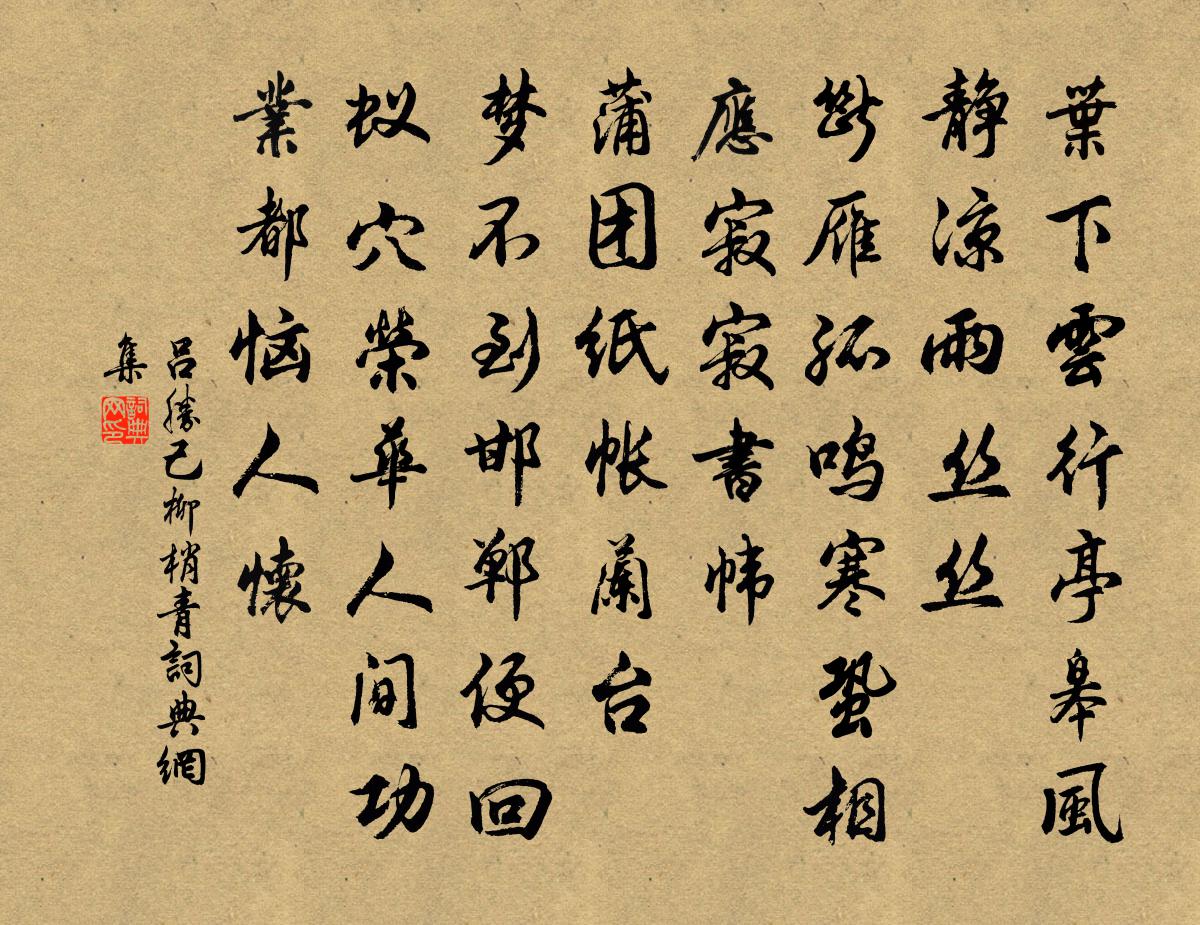 葉下雲行亭皋風
靜凉雨丝丝
斷雁孤鸣寒蛩相
應寂寂書帏
蒲团纸帐蘭台
梦不到邯鄲便回
蚁穴榮華人间功
業都恼人懷
呂勝己柳梢青詞典網
集
詞典
网印